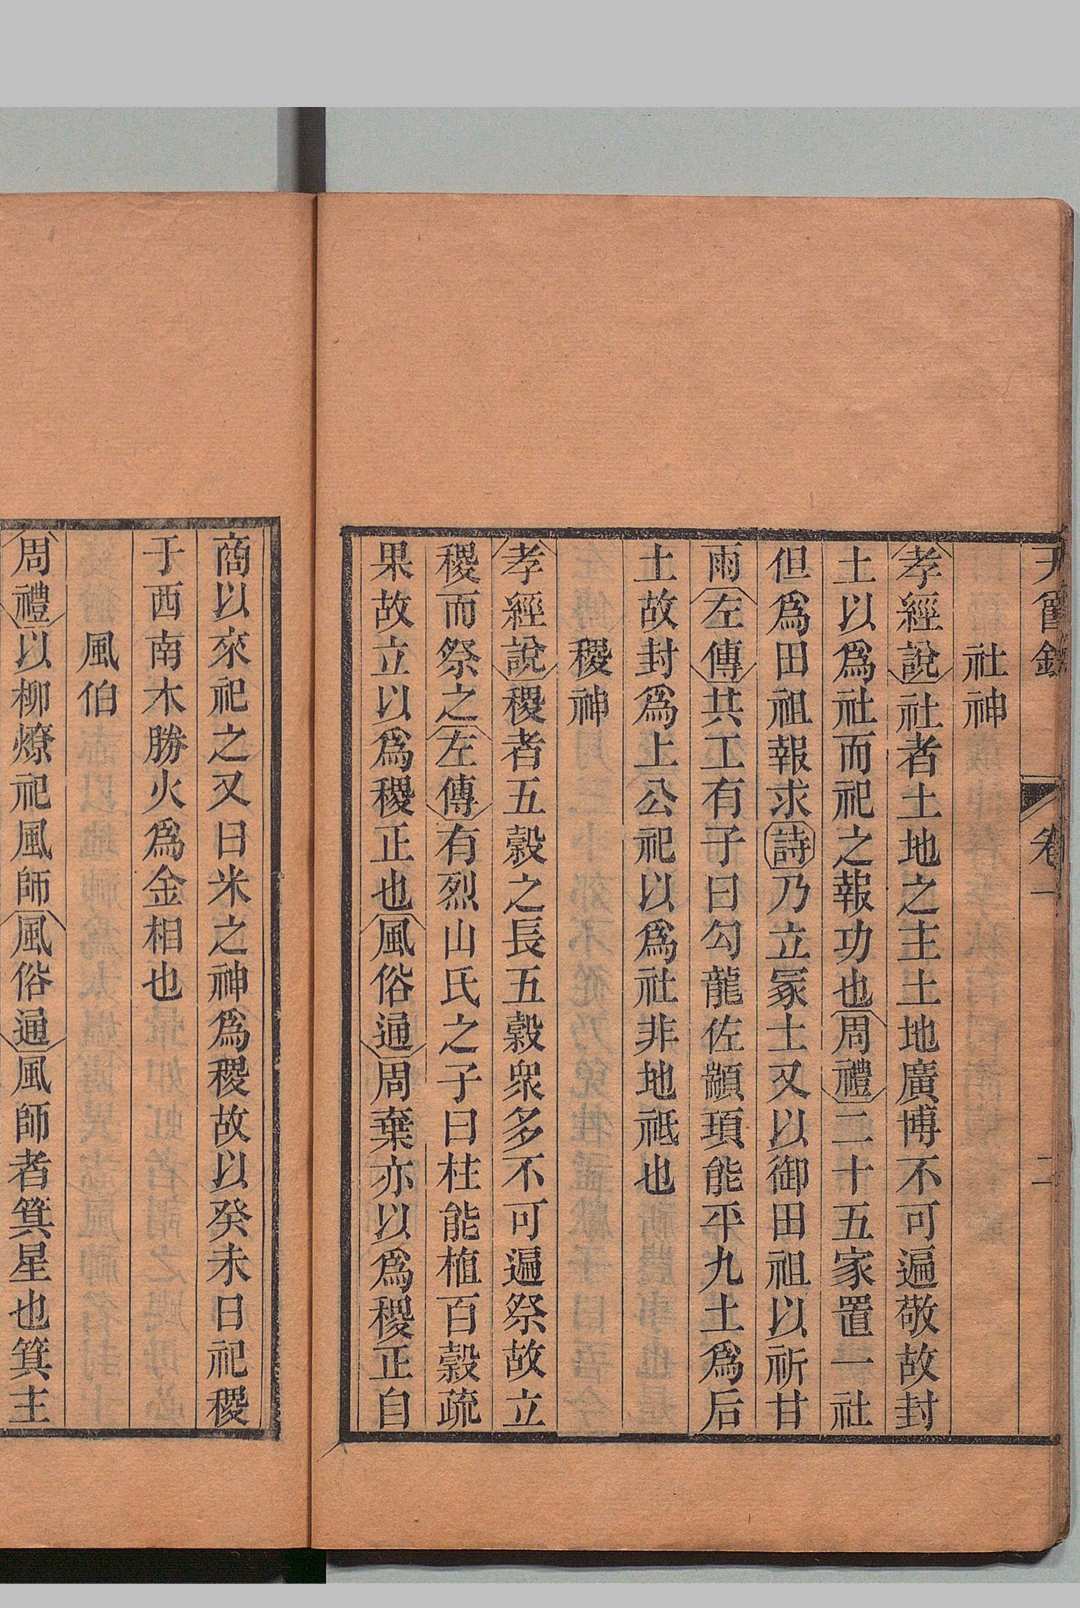 卷一　二
社神
孝經說社者土地之主土地廣博不可遍敬故封
土以爲社而祀之報功也周禮二十五家置一社
但爲田祖報求詩乃立冢土又以御田祖以祈甘
雨左傳共工有子曰勾龍佐顓頊能平九土爲后
土故封爲上公祀以爲社非地祗也
稷神
孝經說稷者五穀之長五穀衆多不可遍祭故立
稷而祭之左傳有烈山氏之子曰柱能植百穀疏
果故立以爲稷正也風俗通周棄亦以爲稷正自
商以來祀之又曰米之神爲稷故以癸未日祀稷
于西南木勝火爲金相也
風伯
周禮以柳燎祀風師風俗通風師者箕星也箕主